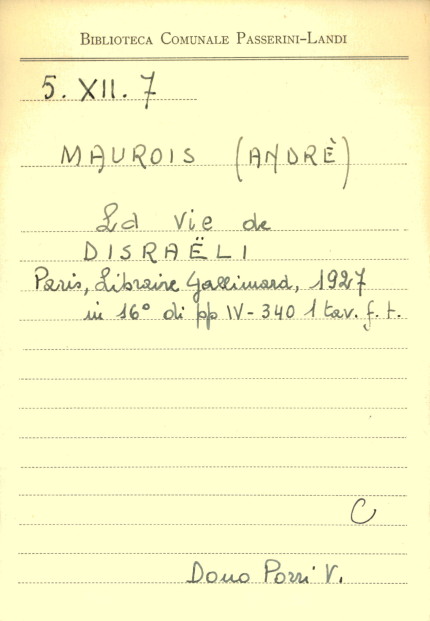 BIBLIOTECA COMUNALE PASSERINI-LANDI
5. XII. 7
MAUROIS (ANDRÈ)
La vie de
DISRAËLI
Paris, Libraire Gallimard, 1927
in 16° di pp IV-340 1 tav. f. t.
C
Dono Pozzi V.